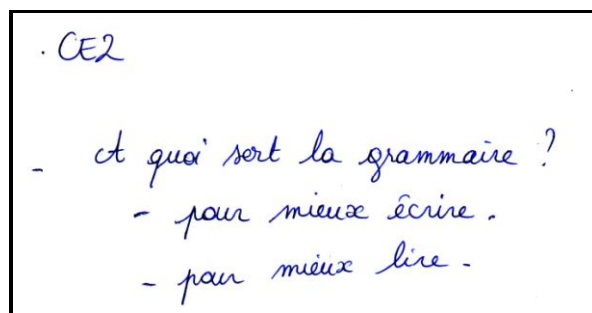 . CE2
- A quoi sert la grammaire ?
- pour mieux écrire.
- pour mieux lire.